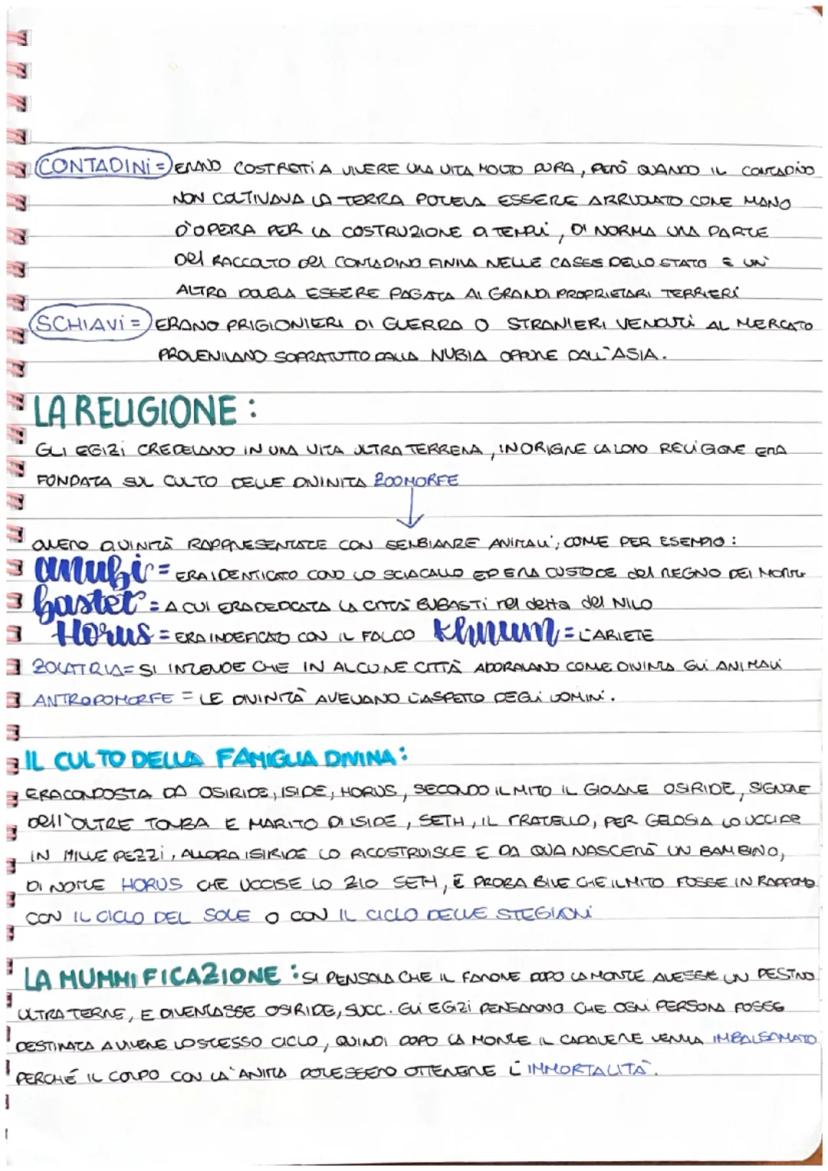 CONTADINI = ERANO COSTRETTI A VIVERE UNA VITA MOLTO DURA, PERÒ QUANDO IL CONTADINO
NON COLTIVAVA LA TERRA POTEVA ESSERE ARRUOLATO COME MANO
D'OPERA PER LA COSTRUZIONE DI TEMPLI, DI NORMA UNA PARTE
DEL RACCOLTO DEL CONTADINO FINIVA NELLE CASSE DELLO STATO E UN'
ALTRA DOVEVA ESSERE PAGATA AI GRANDI PROPRIETARI TERRIERI
SCHIAVI = ERANO PRIGIONIERI DI GUERRA O STRANIERI VENDUTI AL MERCATO
PROVENIVANO SOPRATUTTO DALLA NUBIA OPPURE DALL'ASIA.
LA RELIGIONE:
GLI EGIZI CREDEVANO IN UNA VITA ULTRATERRENA, IN ORIGINE LA LORO RELIGIONE ERA
FONDATA SUL CULTO DELLE DIVINITA ZOOMORFE
OVVERO DIVINITÀ RAPPRESENTATE CON SEMBIANZE ANIMALI, COME PER ESEMPIO:
anubi = ERA IDENTICATO COND LO SCIACALLO ED ERA CUSTODE del REGNO DEI MORTI
bastet = A CUI ERA DEDICATA LA CITTÀ BUBASTI nel delta del NILO
Horus = ERA INDEFICATO CON IL FALCO Khnum = L'ARIETE
ZOLATRIA = SI INTENDE CHE IN ALCUNE CITTÀ ADORAVANO COME DIVINITÀ GLI ANIMALI
ANTROPOMORFE = LE DIVINITÀ AVEVANO L'ASPETO DEGLI UOMINI.
IL CULTO DELLA FAMIGLIA DIVINA:
ERA CONDOSTA DA OSIRIDE, ISIDE, HORUS, SECONDO IL MITO IL GIOVANE OSIRIDE, SIGNORE
DELL'OLTRE TOMBA E MARITO DI ISIDE, SETH, IL FRATELLO, PER GELOSIA LO UCCIDE
IN MILLE PEZZI, ALLORA ISIRIDE LO RICOSTRUISCE E DA QUA NASCERÀ UN BAMBINO,
DI NOME HORUS CHE UCCISE LO ZIO SETH, È PROBABILE CHE IL MITO FOSSE IN RAPPORTO
CON IL CICLO DEL SOLE O CON IL CICLO DELLE STEGIONI
LA MUMMIFICAZIONE: SI PENSAVA CHE IL FARAONE DOPO LA MORTE AVESSE UN DESTINO
ULTRA TERNE, E DIVENTASSE OSIRIDE, SUCC. GLI EGIZI PENSARONO CHE OGNI PERSONA FOSSE
DESTINATA A VIVERE LO STESSO CICLO, QUINDI DOPO LA MORTE IL CADAVERE VENIVA IMBALSAMATO
PERCHÉ IL CORPO CON LA ANIMA POTESSERO OTTENERE L'IMMORTALITÀ.